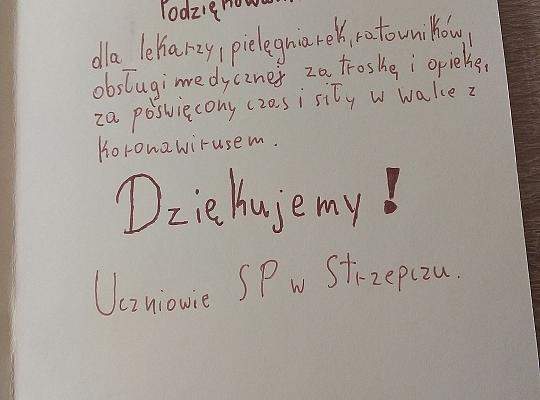 Podziękowan
dla lekarzy, pielęgniarek, ratowników,
obsługi medycznej za troskę i opiekę,
za poświęcony czas i siły w walce z
koronawirusem.
Dziękujemy!
Uczniowie SP w Strzepczu.